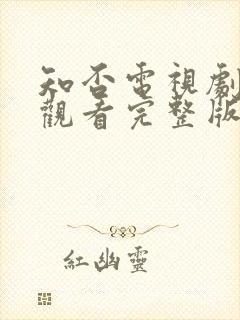 知否電視劇
觀看完整版
紅幽靈